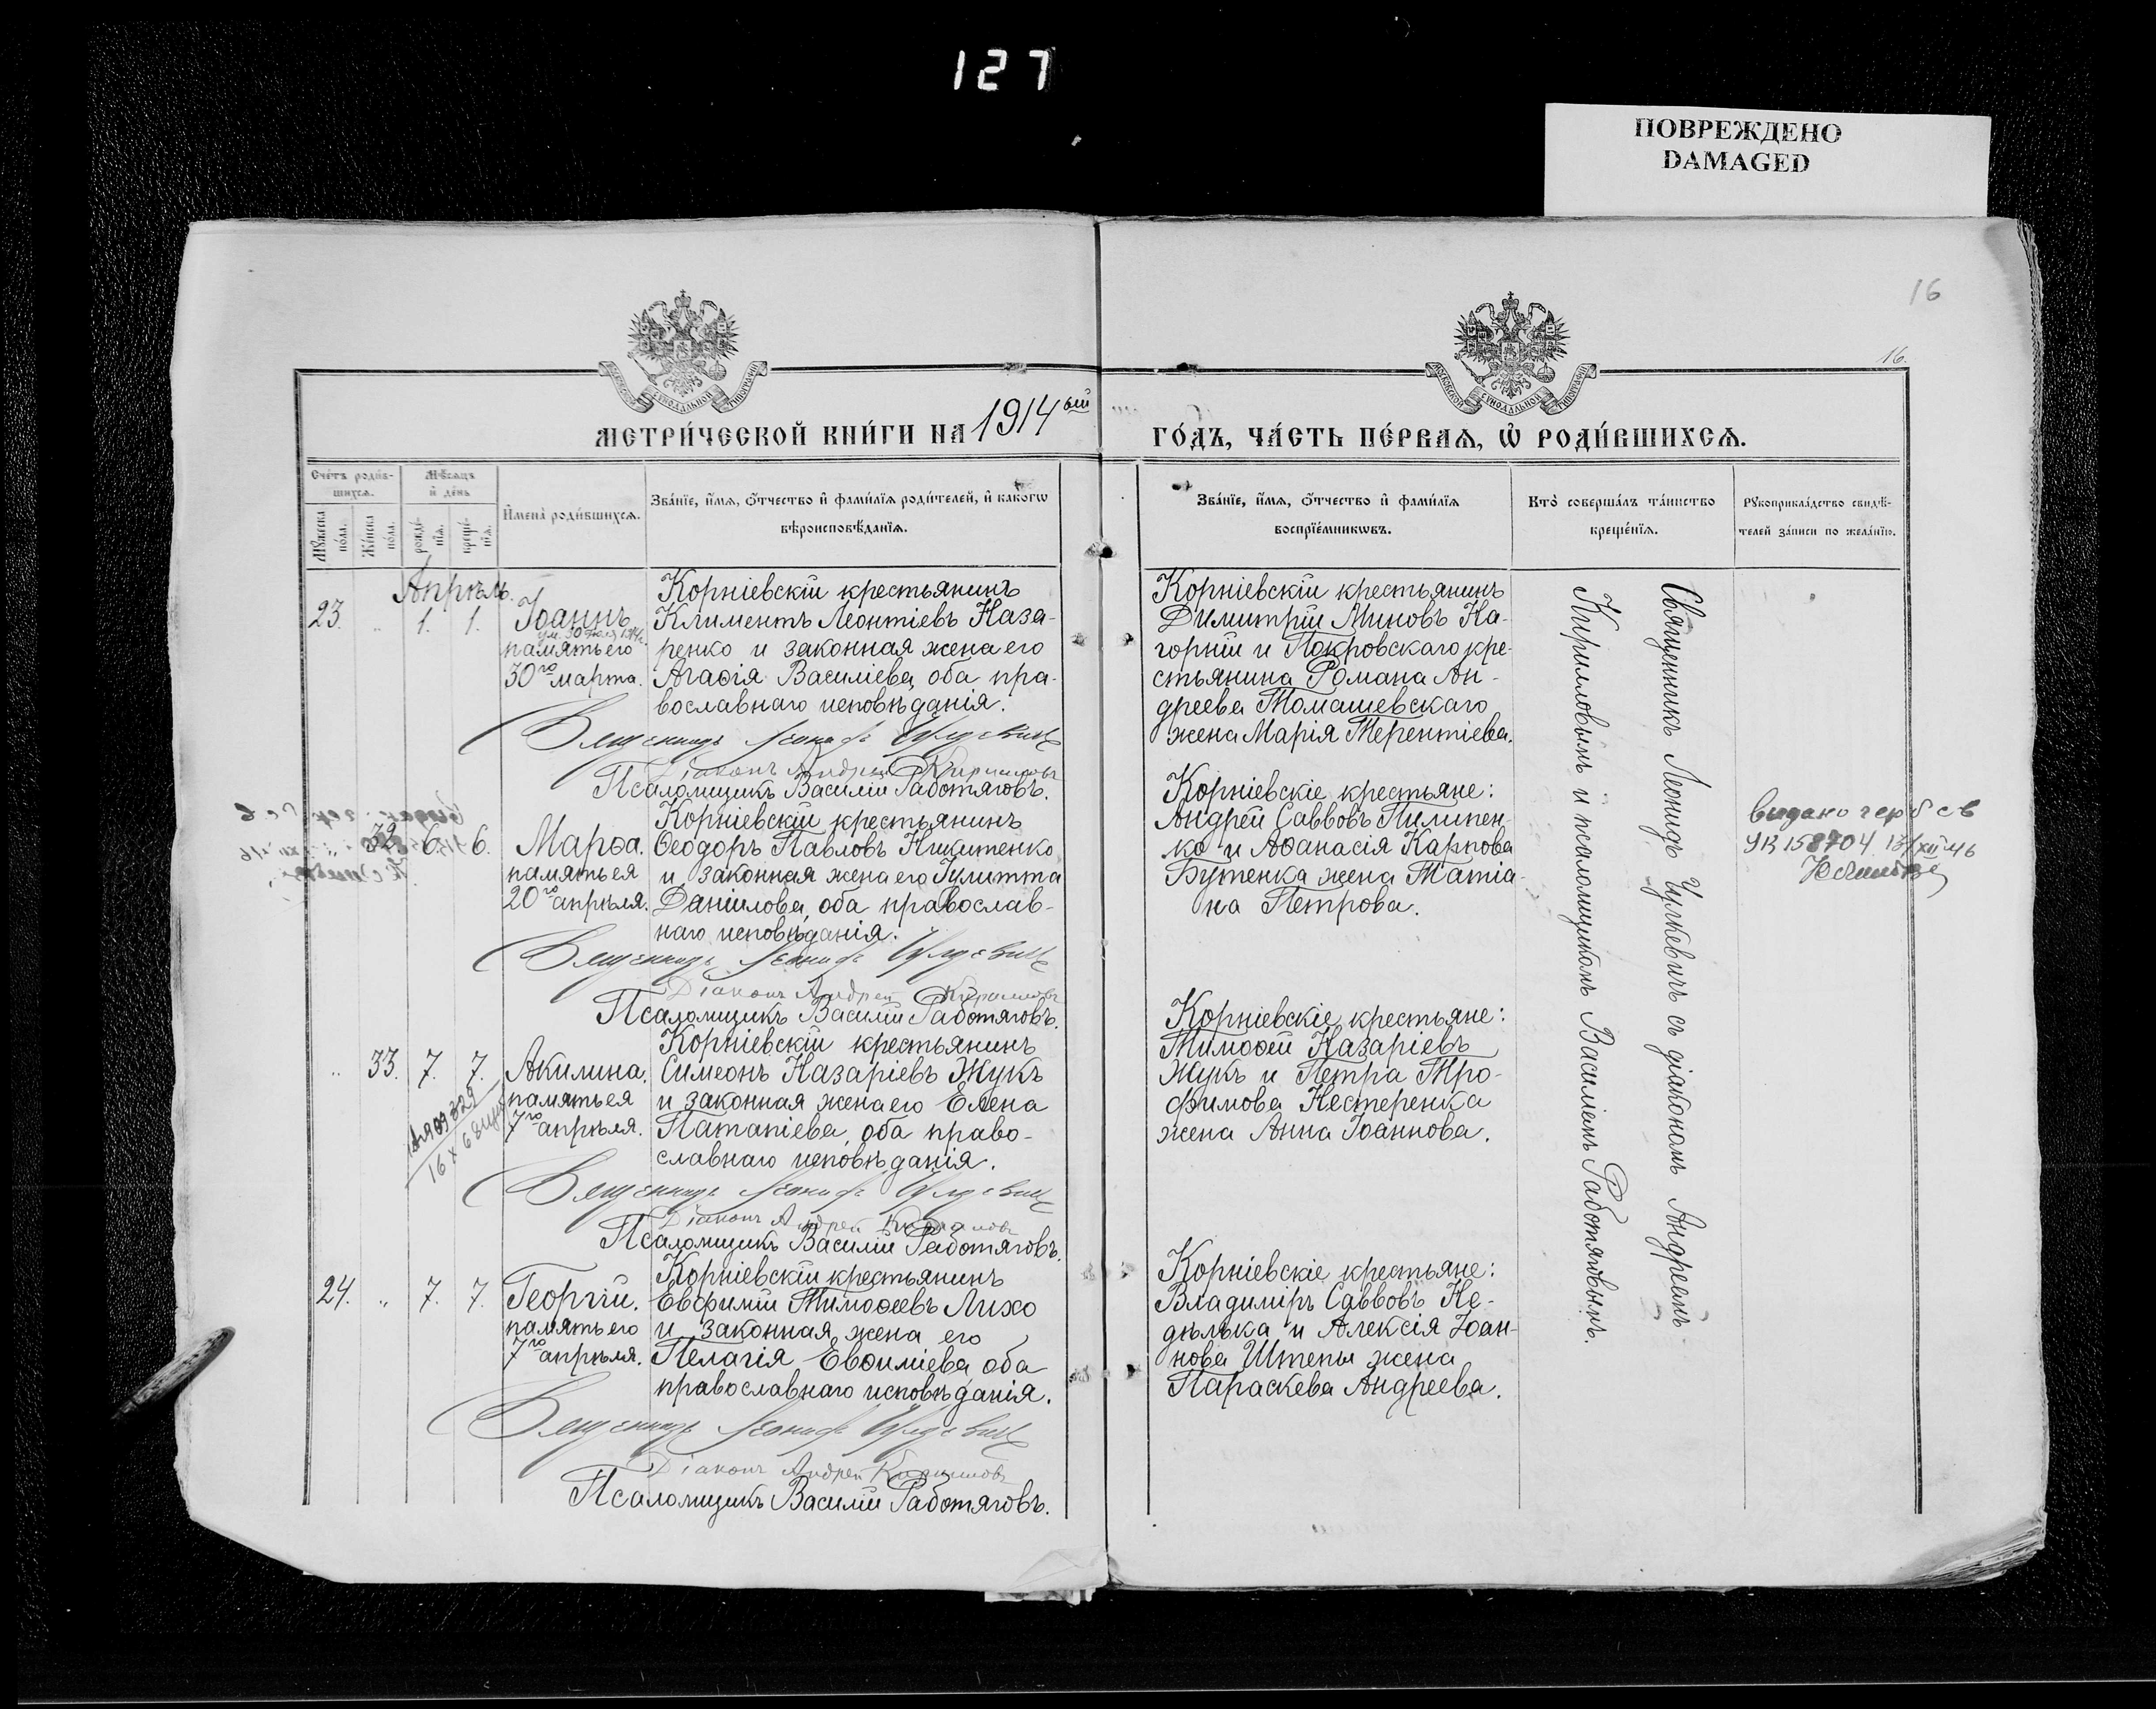 127
ПОВРЕЖДЕНО
DAMAGED
16
16.
МЕТРИ́ЧЕСКОЙ КНИ́ГИ НА 1914ый
ГО́ДЪ, ЧА́СТЬ ПЕ́РВАЯ, Ѡ РОДИ́ВШИХСЯ.
Сче́тъ роди́в-
шихся.
Мѣ́сяцъ
и̓ де́нь
Мꙋ́жеска
по́ла.
Же́нска
по́ла.
рожде́-
нїя.
креще́-
нїя.
И̓мена̀ роди́вшихся.
Зва́нїе, и̓́мя, ѻ҆́тчество и҆ фами́лїя роди́телей, и҆ како́гѡ
вѣроисповѣ́данїя.
Зва́нїе, и̓́мя, ѻ҆́тчество и҆ фами́лїя
воспрїе́мникѡвъ.
Кто̀ соверша́лъ та́инство
креще́нїя.
Рꙋкоприкла́дство свидѣ́-
телей за́писи по жела́нїю.
Апрѣль.
23. „ 1. 1.
Іоаннъ
память его
30го марта.
Корніевскій крестьянинъ
Климентъ Леонтіевъ Наза-
ренко и законная жена его
Агаѳія Василіева, оба пра-
вославнаго исповѣданія.
Священникъ Леонидъ
Діаконъ Андрей Кирилловъ
Псаломщикъ Василій Работяговъ.
Корніевскій крестьянинъ
Димитрій Миновъ На-
горній и Покровскаго кре-
стьянина Романа Ан-
дреева Томашевскаго
жена Марія Терентіева.
32. 6. 6.
Марѳа.
память ея
20го апрѣля.
Корніевскій крестьянинъ
Ѳеодоръ Павловъ Никитенко
и законная жена его Іулитта
Даніилова, оба православ-
наго исповѣданія.
Священникъ Леонидъ
Діаконъ Андрей Кирилловъ
Псаломщикъ Василій Работяговъ.
Корніевскіе крестьяне:
Андрей Саввовъ Пилипен-
ко и Аѳанасія Карпова
Бутенка жена Татіа-
на Петрова.
видано герб св
УВ 158704 13/XII 46
„ 33. 7. 7.
Акилина.
память ея
7го апрѣля.
Корніевскій крестьянинъ
Симеонъ Назаріевъ Жукъ
и законная жена его Елена
Патапіева, оба право-
славнаго исповѣданія.
Священникъ Леонидъ
Діаконъ Андрей Кирилловъ
Псаломщикъ Василій Работяговъ.
Корніевскіе крестьяне:
Тимоѳей Назаріевъ
Жукъ и Петра Тро-
фимова Нестеренка
жена Анна Іоаннова.
24. „ 7. 7.
Георгій.
память его
7го апрѣля.
Корніевскій крестьянинъ
Евфимій Тимоѳеевъ Лихо
и законная жена его
Пелагія Евѳиміева, оба
православнаго исповѣданія.
Священникъ Леонидъ
Діаконъ Андрей Кирилловъ
Псаломщикъ Василій Работяговъ.
Корніевскіе крестьяне:
Владиміръ Саввовъ Не-
дѣлька и Алексія Іоан-
нова Штепы жена
Параскева Андреева.
Священникъ Леонидъ Чулкевичъ съ діакономъ Андреемъ
Кирилловымъ и псаломщикомъ Василіемъ Работяговымъ.